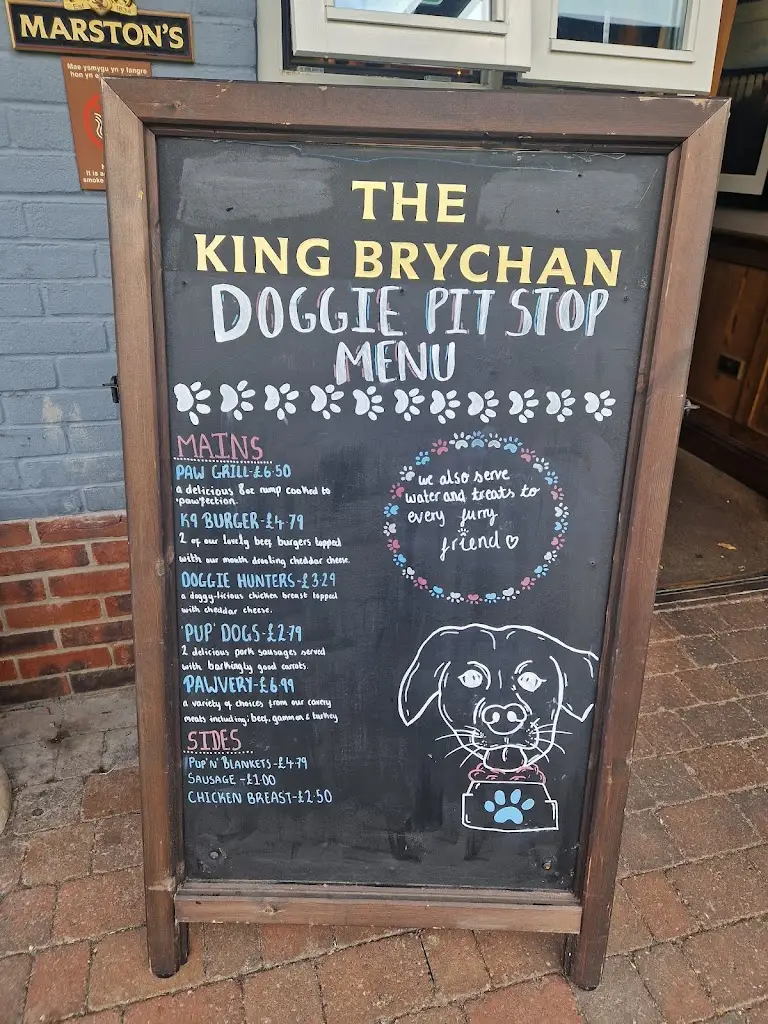 MARSTON'S
Mae ysmygu yn y fangre
hon yn
THE
KING BRYCHAN
DOGGIE PIT STOP
MENU
MAINS
PAW GRILL-£6.50
a delicious 8oz rump cooked to
pawfection.
K9 BURGER-£4.79
2 of our lovely beef burgers topped
with our mouth drooling cheddar cheese.
DOGGIE HUNTERS-£3.29
a doggy-licious chicken breast topped
with cheddar cheese.
'PUP' DOGS-£2.79
2 delicious pork sausages served
with barkingly good carrots.
PAWVERY-£6.99
a variety of choices from our carvery
meats including; beef, gammon & turkey
SIDES
PUP'N'BLANKETS-£4.79
SAUSAGE-£1.00
CHICKEN BREAST-£2.50
we also serve
water and treats to
every furry
friend